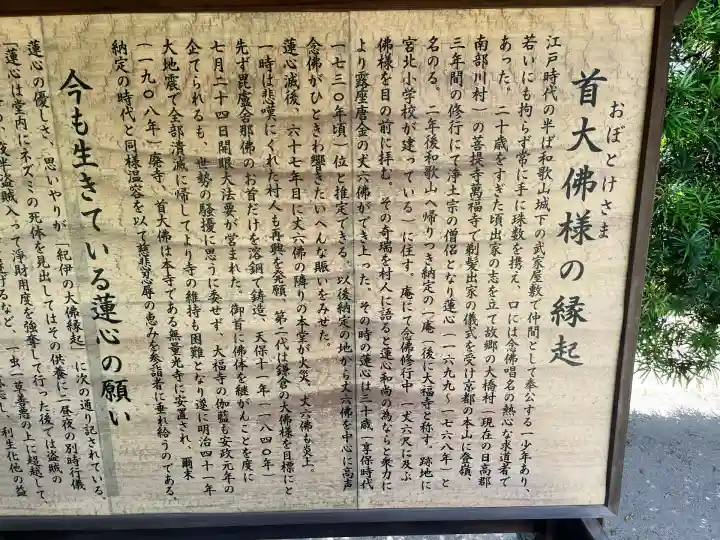 おぼとけさま
首大佛様の縁起
江戸時代の半ば和歌山城下の武家屋敷で仲間として奉公する一少年あり、
若いにも拘らず常に手に珠数を携え、口には念佛唱名の熱心な求道者で
あった。二十歳をすぎた頃出家の志を立て故郷の大橋村(現在の日高郡
南部川村)の菩提寺萬福寺で剃髪出家の儀式を受け京都の本山に登嶺、
三年間の修行にて浄土宗の僧侶となり蓮心(一六九九〜一七六八年)と
名のる。二年後和歌山へ帰りつき納定の一庵(後に大福寺と称す。跡地に
宮北小学校が建っている)に住す。庵にて念佛修行中、丈六尺に及ぶ
佛様を目の前に拝む。その奇瑞を村人に語ると蓮心和尚の為ならと衆力に
より露座唐金の丈六佛ができ上った。その時の蓮心は三十歳(享保時代
一七三〇年頃)位と推定できる。以後納定の地から丈六佛を中心に高声
念佛がひときわ響きたいへんな賑いをみせた。
蓮心滅後、六十七年目に丈六佛の隣りの本堂が火災、丈六佛も炎上。
一時は悲嘆にくれた村人も再興を発願、第二代は鎌倉の大佛様を目標にと
先ず毘盧舎那佛のお首だけを溶銅で鋳造、天保十一年(一八四〇年)
七月二十四日開眼大法要が営まれた。御首に佛体を継がんことを度に
企てられるも、世勢の騒擾に思うに委せず、大福寺の伽藍も安政元年の
大地震で全部潰滅に帰してより寺の維持も困難となり遂に明治四十一年
(一九〇八年)廃寺、首大佛は本寺である無量光寺に安置され、爾来
納定の時代と同様温容を以て慈悲忍辱の恵みを参詣者に垂れ給うのである。
今も生きている蓮心の願い
蓮心の優しさ、思いやりが「紀伊の大佛縁起」に次の通り記されている。
「蓮心は堂内にネズミの死体を見出してはその供養に二昼夜の別時行儀
盗賊入って浄財用度を強奪して行った後では盗賊の
(虫)草善悪の上に超越して、
利生化他の益